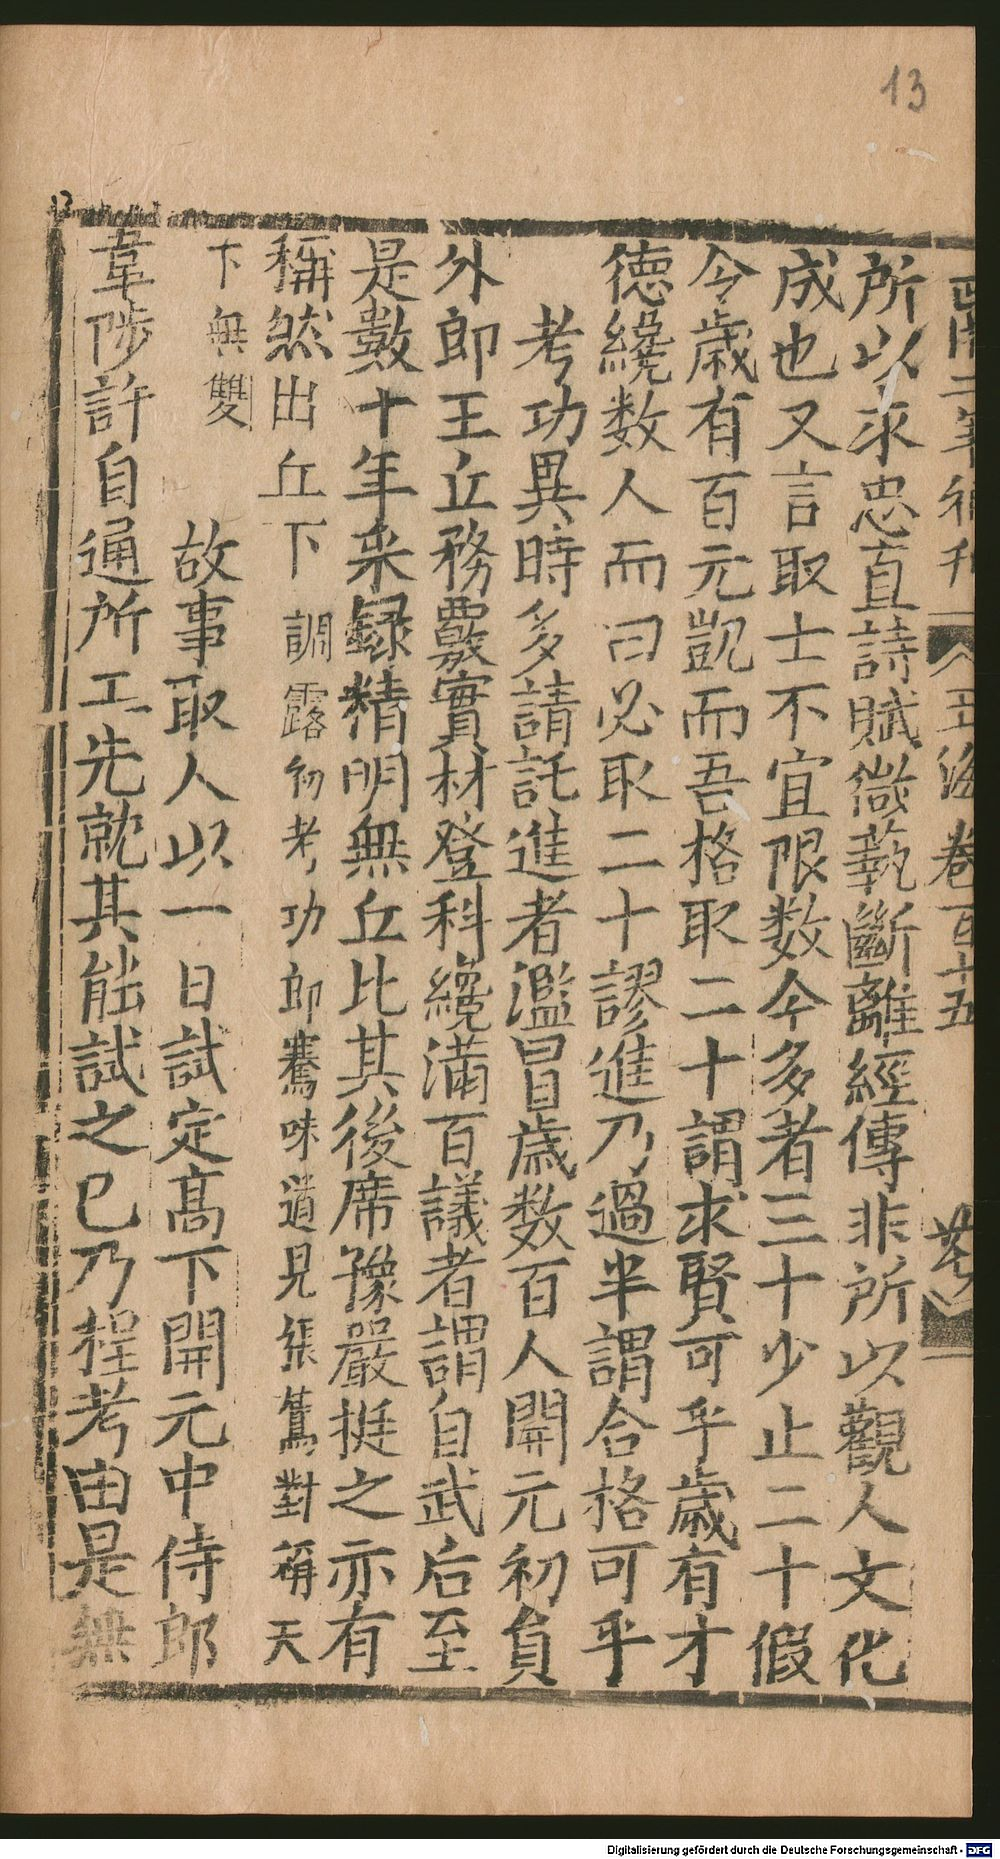 13
玉海卷百十五
所以求忠直詩賦微藝斷離經傳非所以觀人文化
成也又言取士不宜限数今多者三十少止二十假
今歳有百元凱而吾格取二十謂求賢可乎歳有才
徳纔数人而曰必取二十謬進乃過半謂合格可乎
考功異時多請託進者濫冒歳数百人開元初員
外郎王丘務覈實材登科纔滿百議者謂自武后至
是數十年采録精明無丘比其後席豫嚴挺之亦有
稱然出丘下 調露初考功郎騫味道見張鷟對稱天
下無雙
故事取人以一日試定髙下開元中侍郎
韋陟許自通所工先就其能試之已乃程考由是無
Digitalisierung gefördert durch die Deutsche Forschungsgemeinschaft - DFG